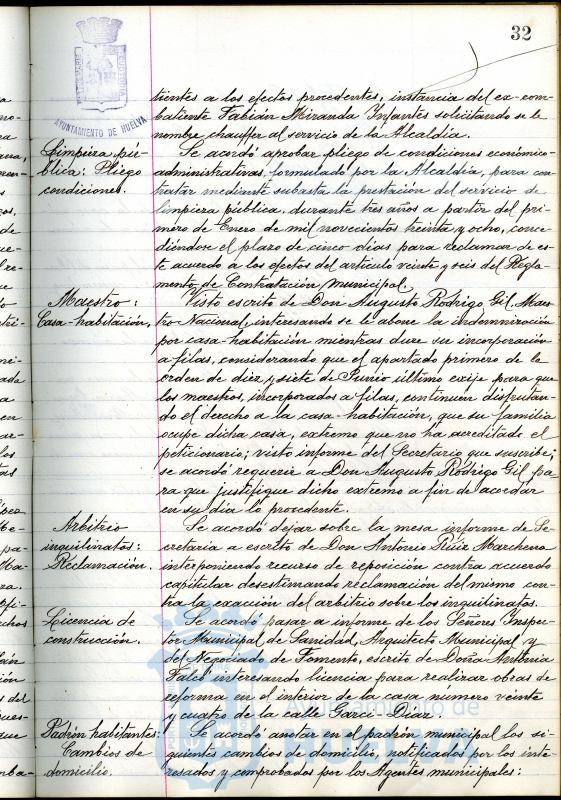 32
AYUNTAMIENTO DE HUELVA
tientes a los efectos procedentes, instancia del ex-com-
batiente Fabián Miranda Ynfantes solicitando se le
nombre chauffer al servicio de la Alcaldía.
Limpieza pú-
blica: Pliego
condiciones.
Se acordó aprobar pliego de condiciones económico-
administrativas, formulado por la Alcaldía, para con-
tratar mediante subasta la prestación del servicio de
limpieza pública, durante tres años a partir del pri-
mero de Enero de mil novecientos treinta y ocho, conce-
diéndose el plazo de cinco dias para reclamar de es-
te acuerdo a los efectos del artículo veinte y seis del Regla-
mento de Contratación municipal.
Maestro:
Casa-habitación.
Visto escrito de Don Augusto Rodrigo Gil Maes
tro Nacional, interesando se le abone la indemnización
por casa-habitación mientras dure su incorporación
a filas, considerando que el apartado primero de la
orden de diez y siete de Junio último exije para que
los maestros, incorporados a filas, continuen disfrutan-
do el derecho a la casa-habitación, que su familia
ocupe dicha casa, extremo que no ha acreditado el
peticionario; visto informe del Secretario que suscribe;
se acordó requerir a Don Augusto Rodrigo Gil pa-
ra que justifique dicho extremo a fin de acordar
en su dia lo procedente.
Arbitrio
inquilinatos:
Reclamación.
Se acordó dejar sobre la mesa informe de Se-
cretaria a escrito de Don Antonio Ruiz Marchena
interponiendo recurso de reposición contra acuerdo
capitular desestimando reclamación del mismo con-
tra la exacción del arbitrio sobre los inquilinatos.
Licencia de
construcción.
Se acordó pasar a informe de los Señores Inspec-
tor Municipal de Sanidad, Arquitecto Municipal y
del Negociado de Fomento, escrito de Doña Antonia
Falcó interesando licencia para realizar obras de
reforma en el interior de la casa número veinte
y cuatro de la calle Garci-Diaz.
Padrón habitantes:
Cambios de
domicilio.
Se acordó anotar en el padrón municipal los si-
guientes cambios de domicilio, notificados por los inte-
resados y comprobados por los Agentes municipales:
Ayuntamiento de